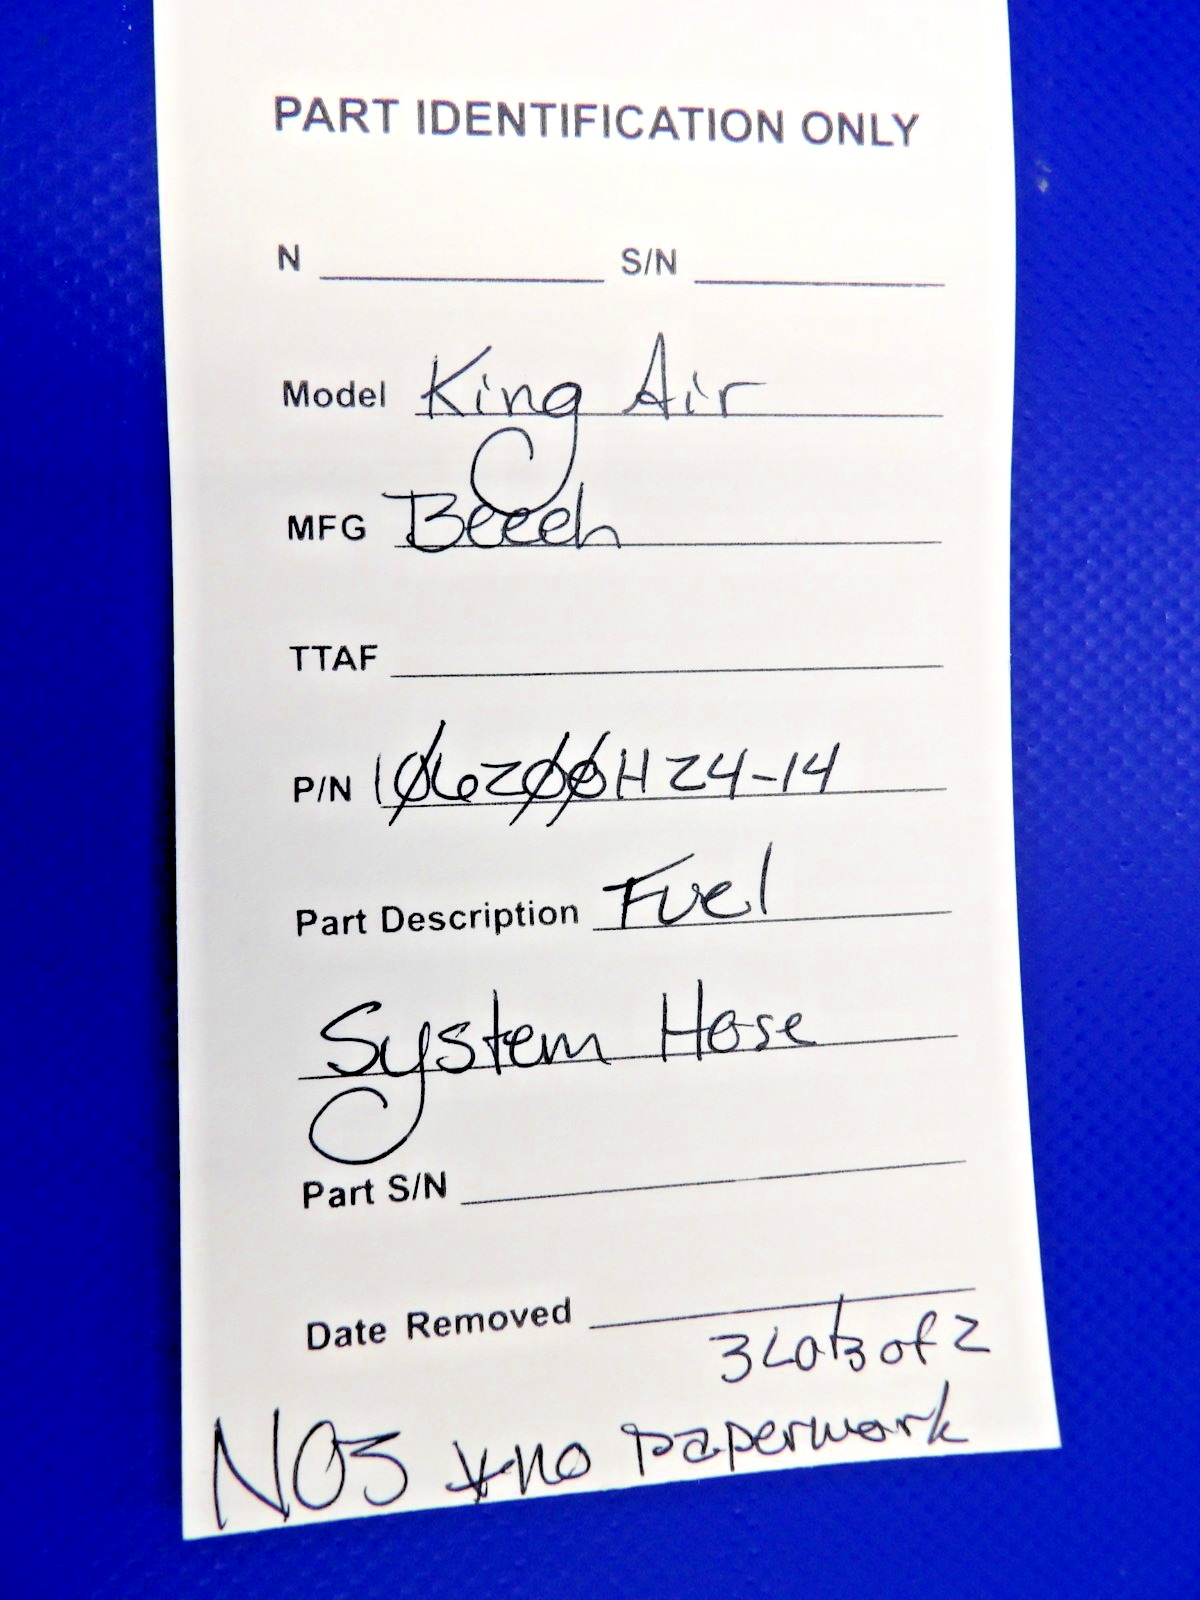 PART IDENTIFICATION ONLY
N S/N
Model King Air
MFG Beech
TTAF
P/N 106200H24-14
Part Description Fuel
System Hose
Part S/N
Date Removed
3 Lots of 2
NOS *no paperwork